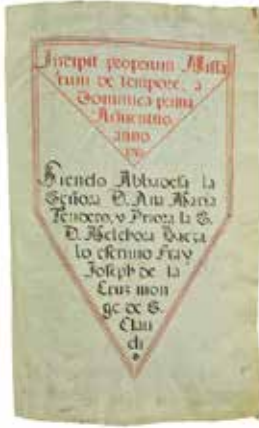 Incipit proprium Missa
rum de tempore, a
Dominica prima
Adventus
anno
Siendo Abbadesa la
Señora D. Ana Maria
Tendero, y Priora la S.
D. Melchora Baeza
lo escrivio Fray
Joseph de la
Cruz mon
ge de S.
Clau
di